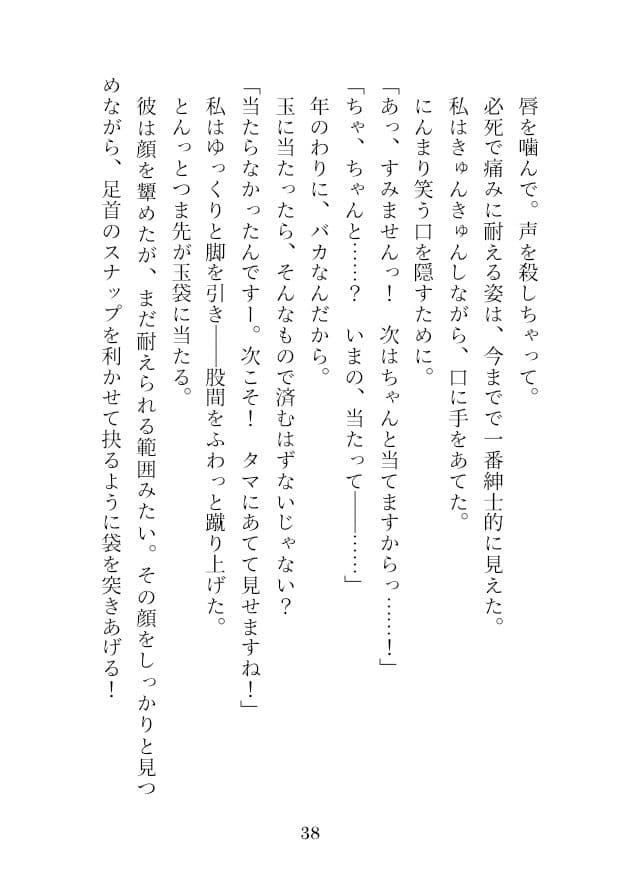 唇を噛んで。声を殺しちゃって。
必死で痛みに耐える姿は、今までで一番紳士的に見えた。
私はきゅんきゅんしながら、口に手をあてた。
にんまり笑う口を隠すために。
「あっ、すみませんっ！　次はちゃんと当てますからっ……！」
「ちゃ、ちゃんと……？　いまの、当たって――……」
年のわりに、バカなんだから。
玉に当たったら、そんなもので済むはずないじゃない？
「当たらなかったんですー。次こそ！　タマにあてて見せますね！」
私はゆっくりと脚を引き――股間をふわっと蹴り上げた。
とんっとつま先が玉袋に当たる。
彼は顔を顰めたが、まだ耐えられる範囲みたい。その顔をしっかりと見つ
めながら、足首のスナップを利かせて抉るように袋を突きあげる！
38